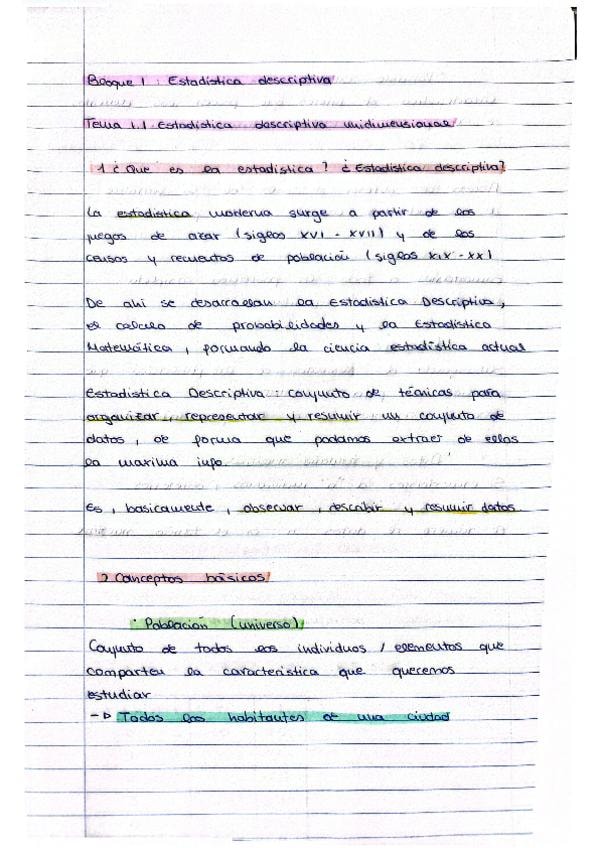 Bloque 1 : Estadística descriptiva
Tema 1.1 Estadística descriptiva unidimensional
1 ¿Que es la estadística? ¿Estadística descriptiva?
La estadística moderna surge a partir de los
juegos de azar (siglos XVI - XVII) y de los
censos y recuentos de población (siglos XIX - XX)
De ahi se desarrollan la Estadística Descriptiva,
el calculo de probabilidades y la Estadística
Matemática, formando la ciencia estadística actual
Estadistica Descriptiva : conjunto de técnicas para
organizar, representar y resumir un conjunto de
datos, de forma que podamos extraer de ellos
la maxima info.
Es, basicamente, observar, describir y resumir datos.
2 Conceptos básicos
· Población (universo)
Conjunto de todos los individuos / elementos que
comparten la caracteristica que queremos
estudiar
-▷ Todos los habitantes de una ciudad